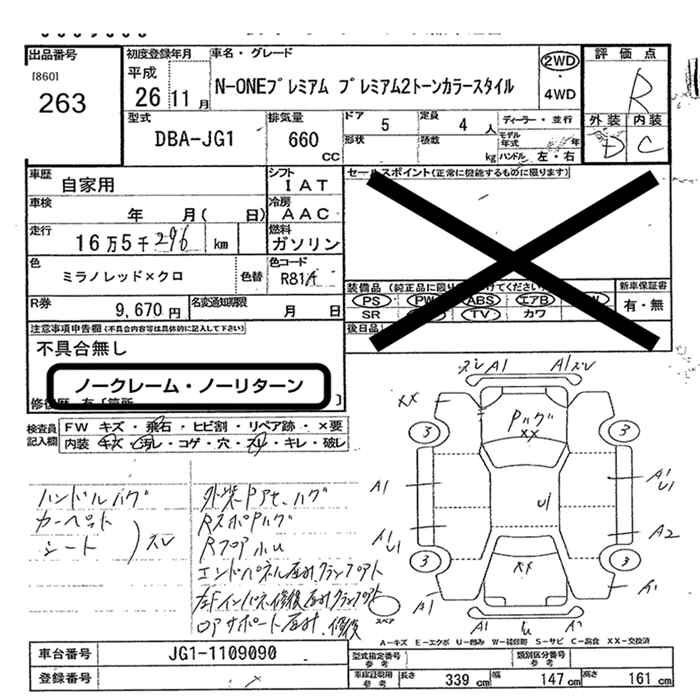 出品番号
[860]
263
初度登録年月
平成
26 11 月
車名・グレード
N-ONEプレミアム プレミアム2トーンカラースタイル
2WD
・
4WD
評価点
R
外装 内装
D C
型式
DBA-JG1
排気量
660
CC
ドア
5
定員
4 人
形状
積載
kg
ディーラー・並行
モデル年式
年
ハンドル 左・右
車歴
自家用
シフト
IAT
車検
年 月( 日)
冷房
AAC
走行
16万5千296 km
燃料
ガソリン
色
ミラノレッド×クロ
色替
色コード
R81A
R券
9,670 円
名変通知期限
月 日
セールスポイント(正常に機能するものに限ります)
装備品(純正品に限り
てください)
PS PW ABS エアB W
SR TV カワ
新車保証書
有・無
後日品
注意事項申告欄(不具合内容等は具体的に記入して下さい)
不具合無し
ノークレーム・ノーリターン
修復歴 有 [箇所 ]
検査員
記入欄
FW キズ・飛石・ヒビ割・リペア跡・×要
内装 キズ・汚レ・コゲ・穴・スレ・キレ・破レ
ハンドルハゲ
カーペット
シート
スレ
外装Pアセ、ハゲ
RスポPハグ
Rフロア小U
エンドパネル歪ミ、クランプアト
左Fインパネ修復歪ミクランプアト
コアサポート歪ミ、修復
スレ A1
A1 スレ
XX
Pハゲ
XX
3
3
A1
A1
U1
U1
A1
U1
A2
3
3
XX
A1
A1
スペア
A1
U
A1
A-キズ E-エクボ U-凹み W-補修跡 S-サビ C-腐食 XX-交換済
車台番号
JG1-1109090
登録番号
型式指定番号
参考
類別区分番号
参考
車検証数用
参考
長さ
339 cm
幅
147 cm
高さ
161 cm